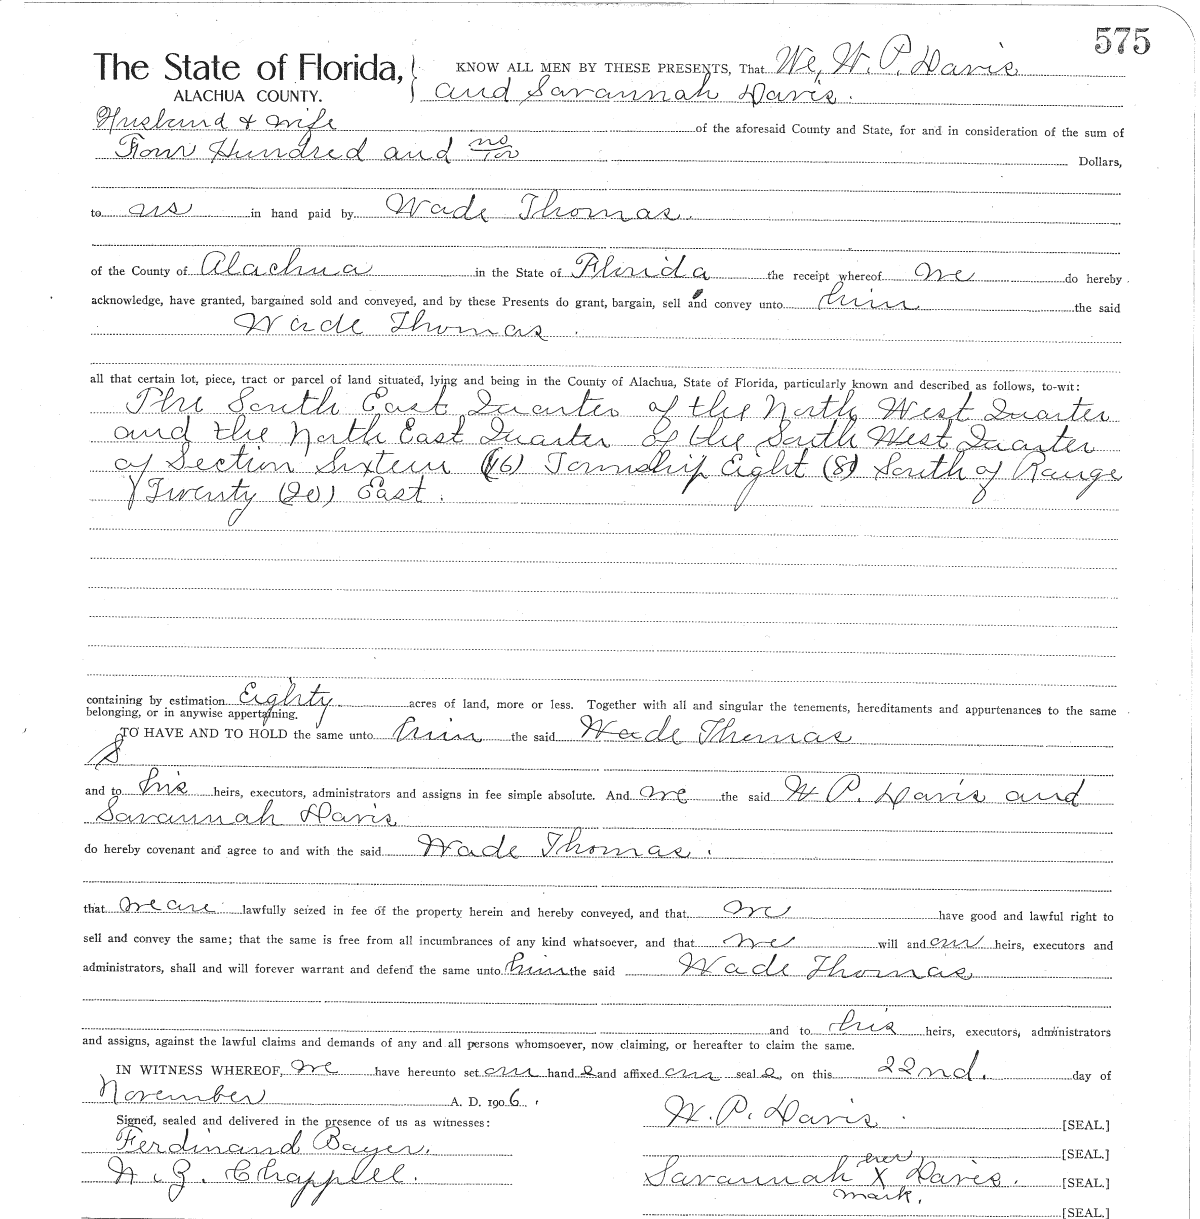 575
The State of Florida, KNOW ALL MEN BY THESE PRESENTS, That We, W. P. Davis
ALACHUA COUNTY. and Savannah Davis.
Husband & wife of the aforesaid County and State, for and in consideration of the sum of
Four Hundred and no/100 Dollars,
to us in hand paid by Wade Thomas.
of the County of Alachua in the State of Florida the receipt whereof we do hereby
acknowledge, have granted, bargained sold and conveyed, and by these Presents do grant, bargain, sell and convey unto him the said
Wade Thomas.
all that certain lot, piece, tract or parcel of land situated, lying and being in the County of Alachua, State of Florida, particularly known and described as follows, to-wit:
The South East Quarter of the North West Quarter
and the North East Quarter of the South West Quarter
of Section Sixteen (16) Township Eight (8) South of Range
Twenty (20) East.
containing by estimation Eighty acres of land, more or less. Together with all and singular the tenements, hereditaments and appurtenances to the same
belonging, or in anywise appertaining.
TO HAVE AND TO HOLD the same unto him the said Wade Thomas
and to his heirs, executors, administrators and assigns in fee simple absolute. And we the said W. P. Davis and
Savannah Davis
do hereby covenant and agree to and with the said Wade Thomas.
that we are lawfully seized in fee of the property herein and hereby conveyed, and that we have good and lawful right to
sell and convey the same; that the same is free from all incumbrances of any kind whatsoever, and that we will and our heirs, executors and
administrators, shall and will forever warrant and defend the same unto him the said Wade Thomas
and to his heirs, executors, administrators
and assigns, against the lawful claims and demands of any and all persons whomsoever, now claiming, or hereafter to claim the same.
IN WITNESS WHEREOF, we have hereunto set our hands and affixed our seals, on this 22nd. day of
November A. D. 1906.
Signed, sealed and delivered in the presence of us as witnesses: W. P. Davis. [SEAL.]
Ferdinand Bayer. [SEAL.]
her
Savannah X Davis. [SEAL.]
mark.
Chappell.
[SEAL.]